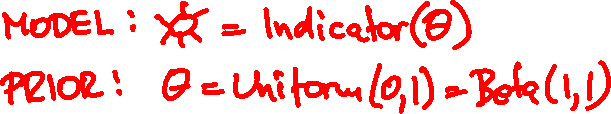 MODEL: = Indicator(θ)
PRIOR: θ = Uniform(0,1) = Beta(1,1)